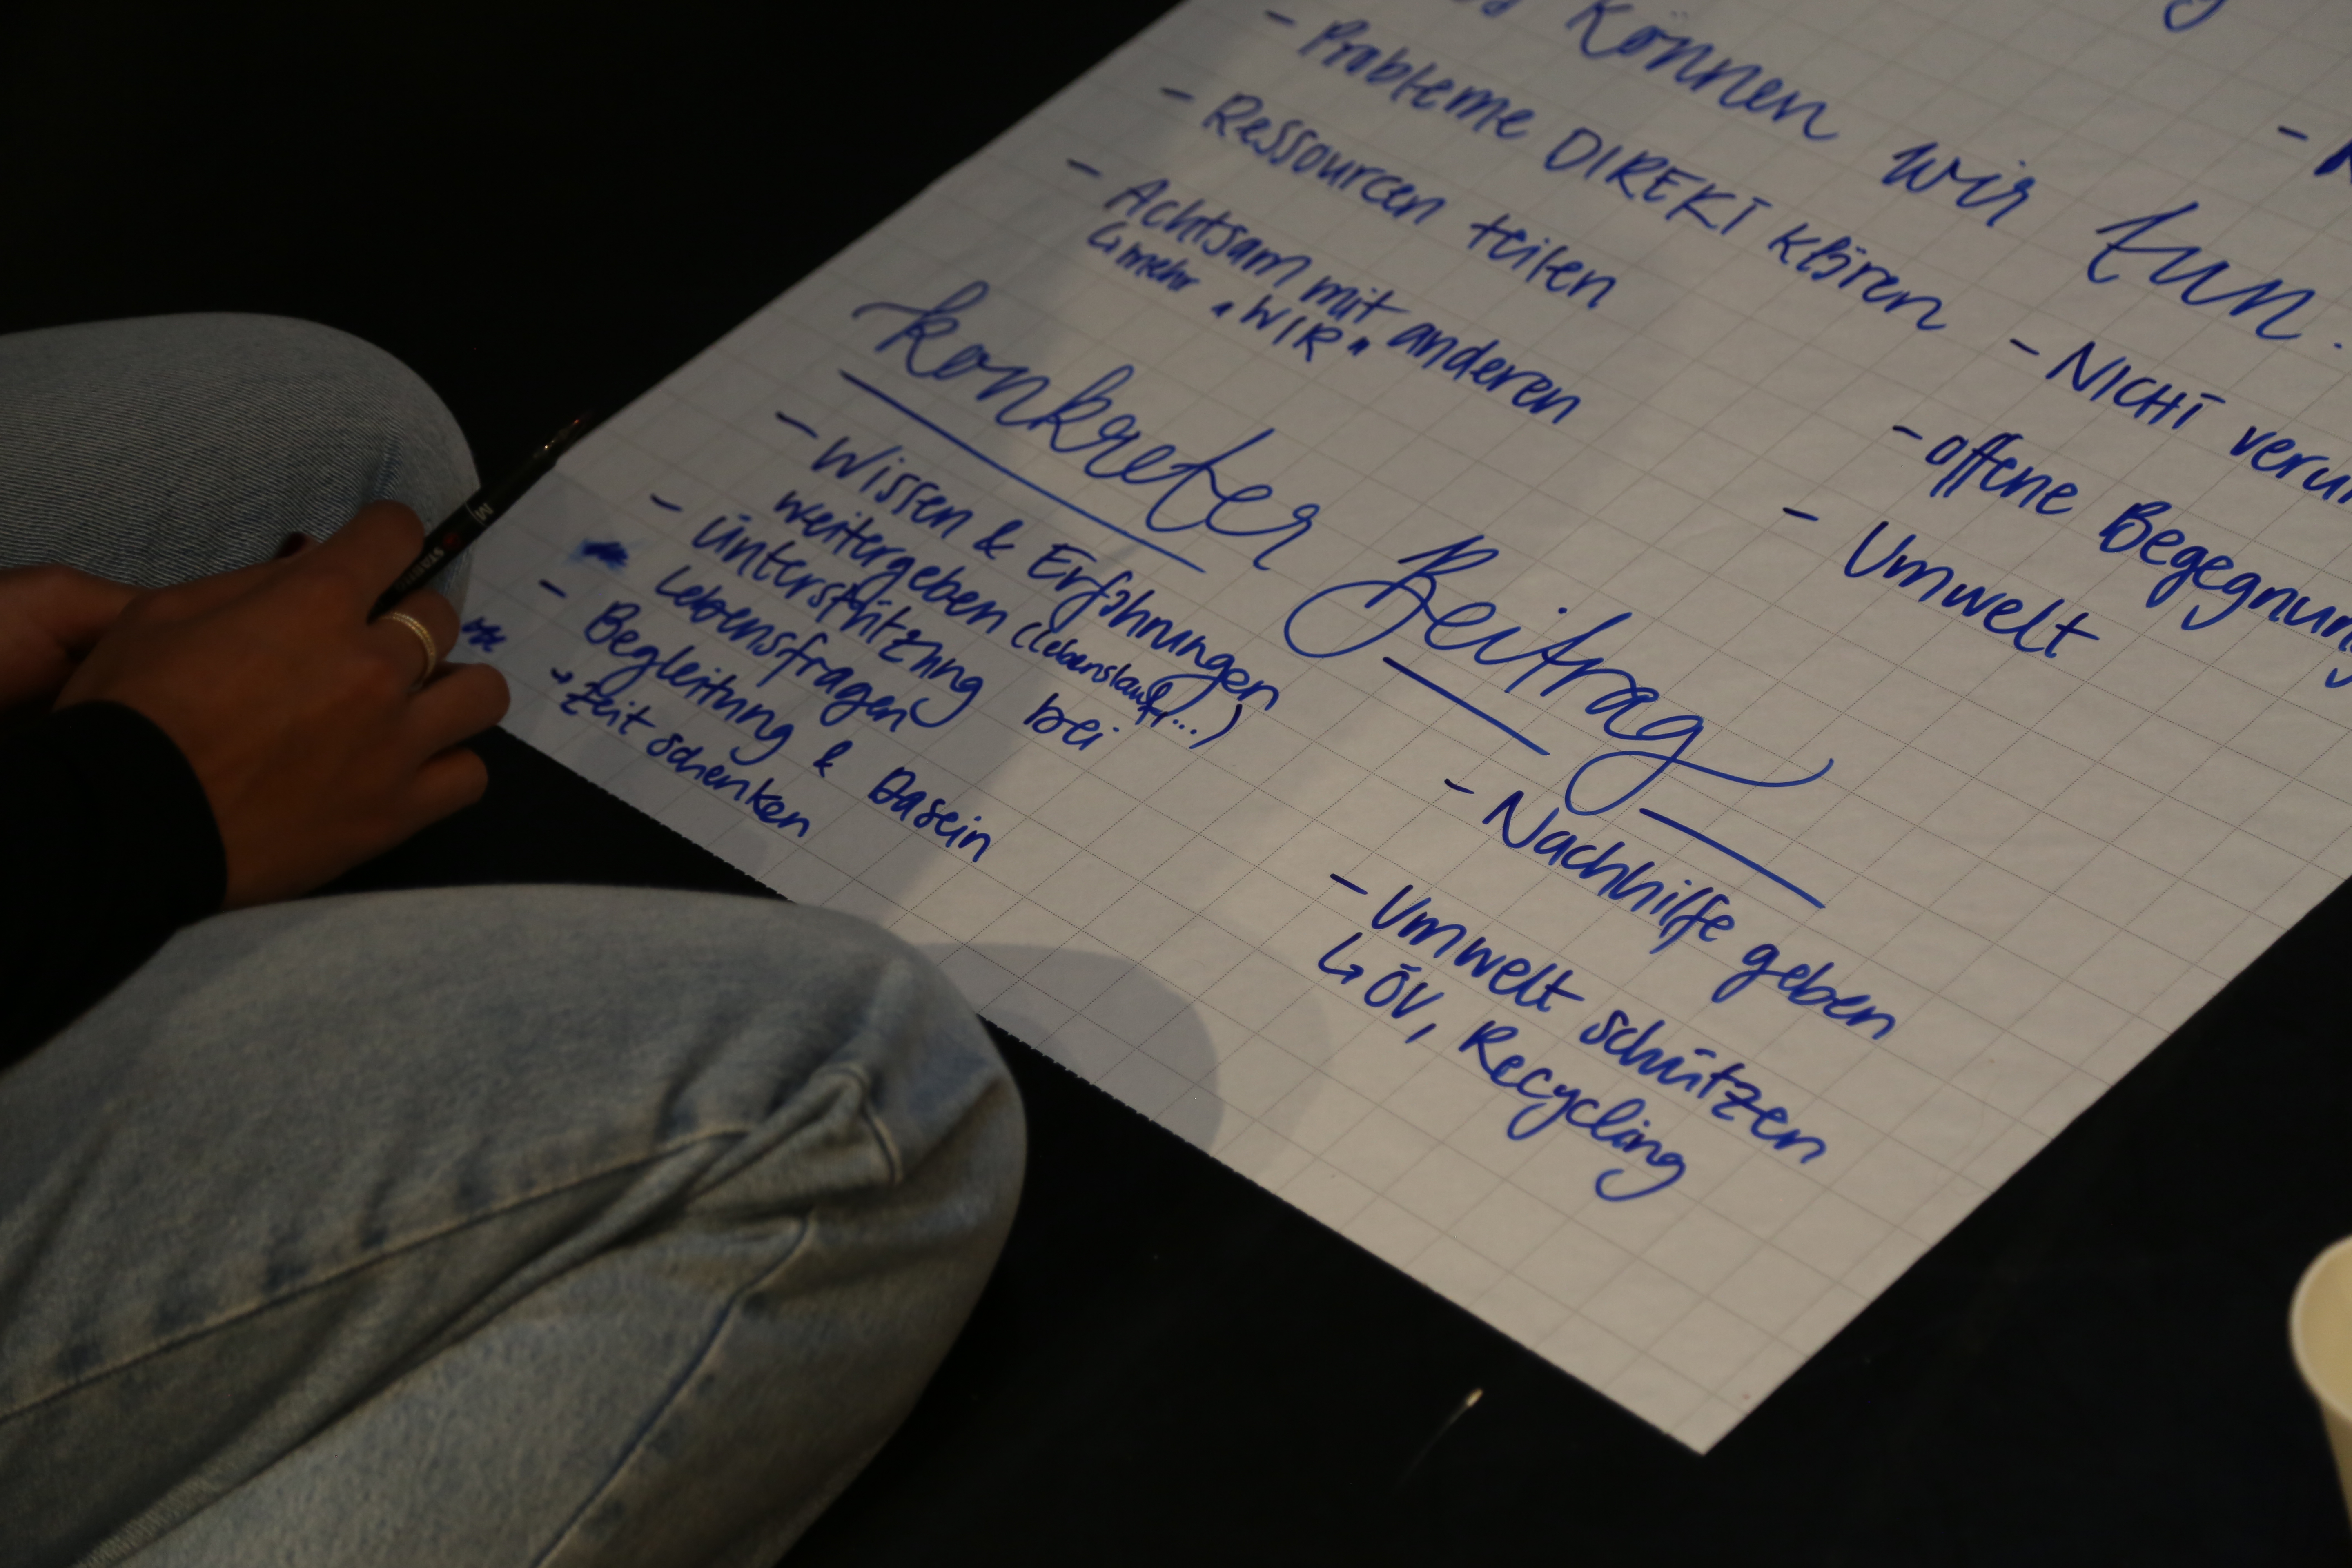 können wir tun.
- Probleme DIREKT klären
- Ressourcen teilen
- Achtsam mit anderen
↳ mehr "WIR"
- NICHT
- offene
- Umwelt
konkreter Beitrag
- Wissen & Erfahrungen
weitergeben (Lebenslauf...)
- Unterstützung bei
Lebensfragen
- Begleitung & Dasein
→ Zeit schenken
- Nachhilfe geben
- Umwelt schützen
↳ ÖV, Recycling
M